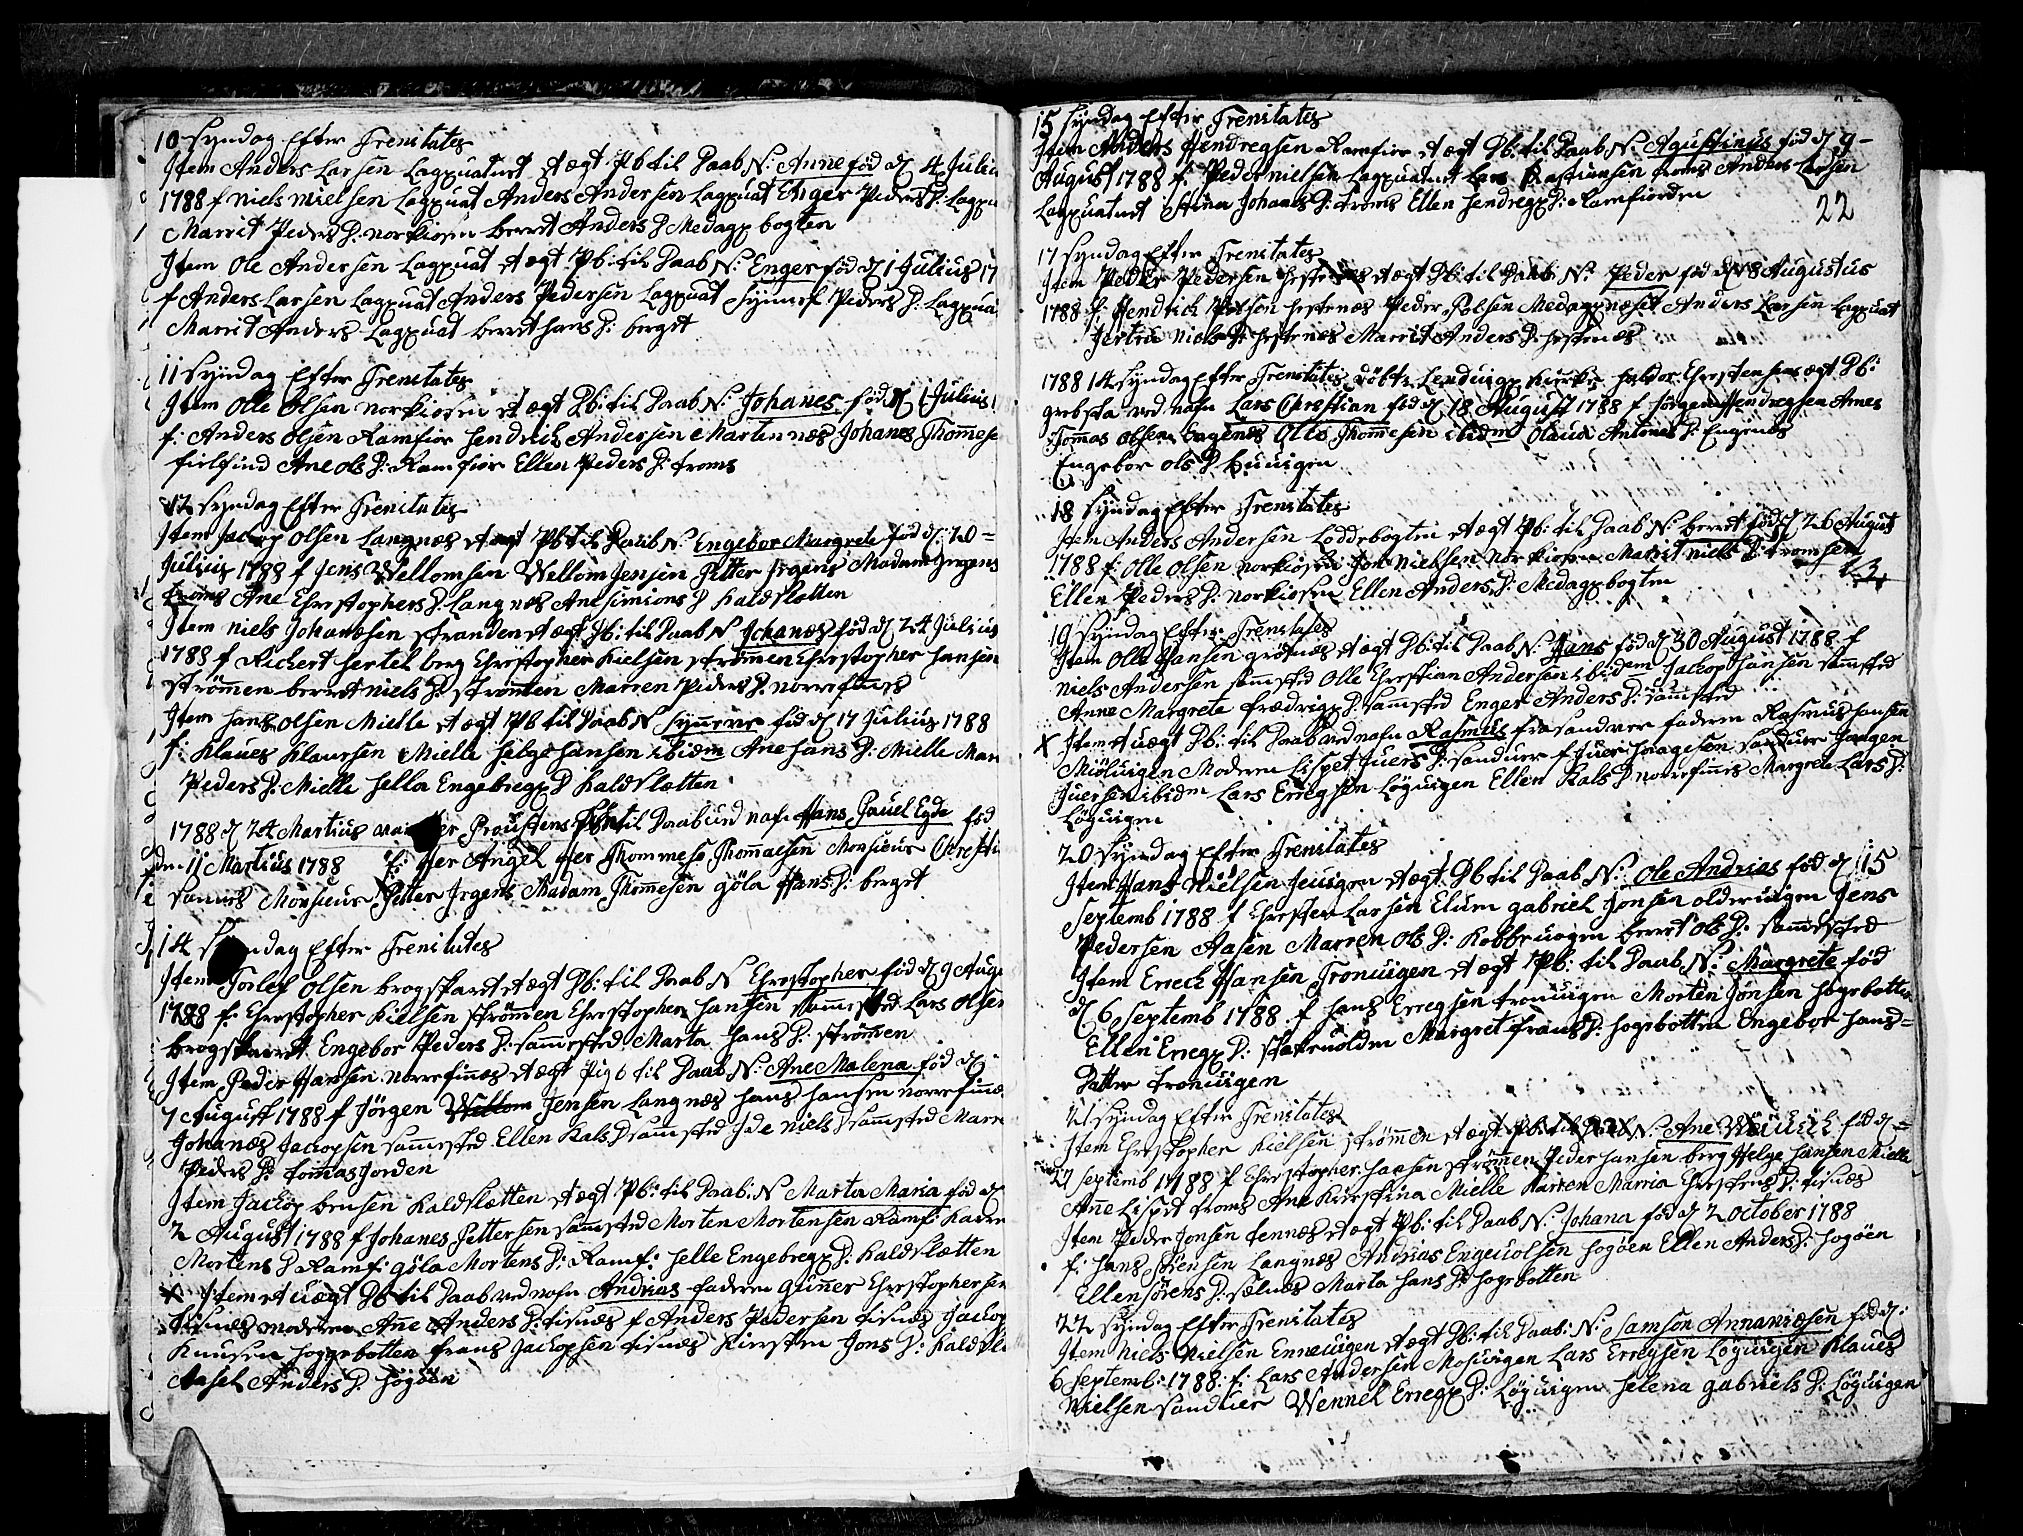 10 Syndag Efter Trenitates
Item Anders Larsen Lagxuatnet et ægt Pb til Daab N: Anne fød d 4 Julii
1788 f Niels Nielsen Lagxuat Anders Andersen Lagxuat Enger Peders D: Lagxu
Marrit Peders D: Norkiosen berret Anders D Medagxbogten
Item Ole Andersen Lagxuat et ægt Pb: til Daab N: Enger fød d 1 Julius 17
f Anders Larsen Lagxuat Anders Pedersen Lagxuat Synnef Peders D: Lagxua
Marrit Anders Lagxuat berret hans D: berget
11 Syndag Efter Trenitates
Item Olle Olsen Norkiosen et ægt Db: til Daab N: Johanes fød d 1 Julius
f: Anders Olsen Ramfior Hendrich Andersen Martennæs Johanes Thommese
fielsund Ane Ols D: Ramfior Ellen Peders D: Troms
12 Syndag Efter Trenitates
Item Jacop Olsen Langnæs et ægt Pb til Daab N: Engebor Margrete fød d: 20=
Julius 1788 f Jens Wellomsen Wellom Jensen Petter Jrgens Madam Jrgens
Troms Ane Chrestophers D. Langnæs Ane Simions D Kaldslætten
Item Niels Johansen Stranden et ægt Db: til Daab N Johanes fød d 24 Julius
1788 f Richert Hertel berg Chrestopher Kielsen Strømmen Chrestopher Hansen
Strømmen berret Niels D. Strømmen Marren Peders D. Norrefinnes
Item Hans Olsen Mielle et ægt Pb til Daab N Synneve fød d 17 Julius 1788
f: Klaues Klauesen Mielle Helge Hansen ibidm Ane Hans D: Mielle Mar
Peders D: Mielle Hella Engebregx D Kaldslætten
1788 d 24 Martius var Her Proustens til Daab ved nafn Hans Pauel Egde fød
den 11 Martius 1788 f: Her Angel Her Thommese Thommesen Monsieur Chresti
Monsieur Petter Jrgens Madam Thommesen Göla Hans D: berget
14 Syndag Efter Trenitates
Item Torlef Olsen brogskaret et ægt Db: til Daab N Chrestopher fød d 9 Augu
1788 f: Chrestopher Kielsen Strømmen Chrestopher Hansen Sammested Lars Olsen
brogskaret Engebor Peders D: Sammested Marta Hans D: Strømen
Item Peder Hansen Norrefinnes et ægt Pigb til Daab N: Ane Malena fød d
7 August 1788 f Jörgen Wellom Jensen Langnæs Hans Hansen Norrefinnæ
Johanæs Jacopsen Sammested Ellen Kals D Samsted Jde Niels D Samsted Marre
Peders D: Tommasjorden
Item Jacop bensen Kaldslætten et ægt Pb: til Daab: N Marta Maria fød d
2 August 1788 f Johanes Pettersen Samsted Morten Mortensen Ramf: Karen
Mortens D Ramf: Göla Mortens D: Ramf: Helle Engebregx D: Kaldslætten
X Item et uægt Db til Daab ved nafn Andrias faderen Gunner Chrestophersen
tisnæs moderen Ane Anders D: tisnæs f Anders Pedersen tisnæs Jacop
Knusen Hoggebotten frans Jacopsen tisnæs Kiersten Jons D: Kaldslæ
Aasel Anders D. Högöen
15 Syndag Efter Trenitates
Item Anders Hendregsen Ramfior et ægt Db: til Daab N: Agustinus fød d 9-
August 1788 f: Peder Nielsen Lagxuatnet Lars bastiansen Troms Anders Larsen
Lagxuatnet Stina Johans D: Troms Ellen Hendregx D: Ramfiorden
22
17 Syndag Efter Trenitates
Item Peder Pedersen Hestenæs et ægt Db: til Daab: N: Peder fød d 18 Augustus
1788 f: Hendrich Polsen Hestenæs Peder Polsen Medagxnæset Anders Larsen Lagxuat
Jertru Niels D Hestenæs Marrit Anders D: Hestenæs
1788 14 Syndag Efter Trenitatis döbt Lenduigx Kierke Haldor Chrestensens ægt Db:
grebsta ved nafn Lars Chrestian fød d 18 August 1788 f Jörgen Hendregsen Arnes
Tomas Olsen Engenes Olle Thommesen ibidm Olaua Antones D: Engenes
Engebor Ols D huuigen
18 Syndag Efter Trenitates
Item Anders Andersen Loddebogten et ægt Pb: til Daab N: berret fød d 26 August
1788 f: Olle Olsen Norkiosen Jon Nielsen Norkiosen Marrit Niels D: Tromsen
Ellen Peders D: Norkiosen Ellen Anders D: Medagxbogten
19 Syndag Efter Trenitates
Item Olle Hansen Grötnæs et ægt Db: til Daab N: Hans fød d 30 August 1788 f
Niels Andersen Sammsted Olle Chrestian Andersen ibidem Jacop Hansen Sammsted
Anne Margrete Fredrigx D: Samsted Enger Anders D: Samsted
X Item et uægt Db: til Daab ved nafn Rasmus fra Sanduer faderen Rasmus Hansen
Miöluigen Moderen Lispet Juers D: Sanduer f Juer Haagesen Sanduer Haagen
Juersen ibidm Lars Erregsen Löguigen Ellen Kals D Norrefinnes Margrete Lars D:
Löguigen
20 Syndag Efter Trenitates
Item Hans Nielsen Jeuigen et ægt Db til Daab N: Ole Andrias fød d 15
Septemb 1788 f Chresten Larsen Elum Gabriel Jonsen Olderuigen Jens
Pedersen Aasen Marren Ols D: Kobbeuogen berret Ols D: Sammested
Item Errech Hansen Tronuigen et ægt Pb: til Daab N: Margrete fød
d 6 Septemb 1788 f Hans Erregsen Tronuigen Morten Jönsen Hogebotten
Ellen Erregx D: Stakeuolden Margret Frans D: Hogebotten Engebor Hans=
Datter Tronuigen
21 Syndag Efter Trenitates
Item Chrestopher Kielsen Strømmen et ægt Pb: til Daab N: Ane fød d=
27 Septemb 1788 f Chrestopher Hansen Strømmen Peder Hansen berg Helge Hansen Mielle
Anne Lispet Troms Ane Kierstina Mielle Karren Marria Chrestens D: tisnæs
Item Peder Jonsen Tennes et ægt Pb: til Daab N: Johana fød d 2 october 1788
f: Hans Jensen Langnæs Andrias Engeuolsen Hogöen Ellen Anders D: Hogöen
Ellen Sörens D: Selnæs Marta Hans D: Hogebotten
22 Syndag Efter Trenitates
Item Niels Nielsen Enneuigen et ægt Db: til Daab: N: Samson Annaniæsen fød d:
6 Septemb: 1788: f: Lars Andersen Mosuigen Lars Erregsen Löguigen Klaues
Nielsen Sanduer Wennel Erregx D: Löguigen Helena Gabriels D: Löguigen